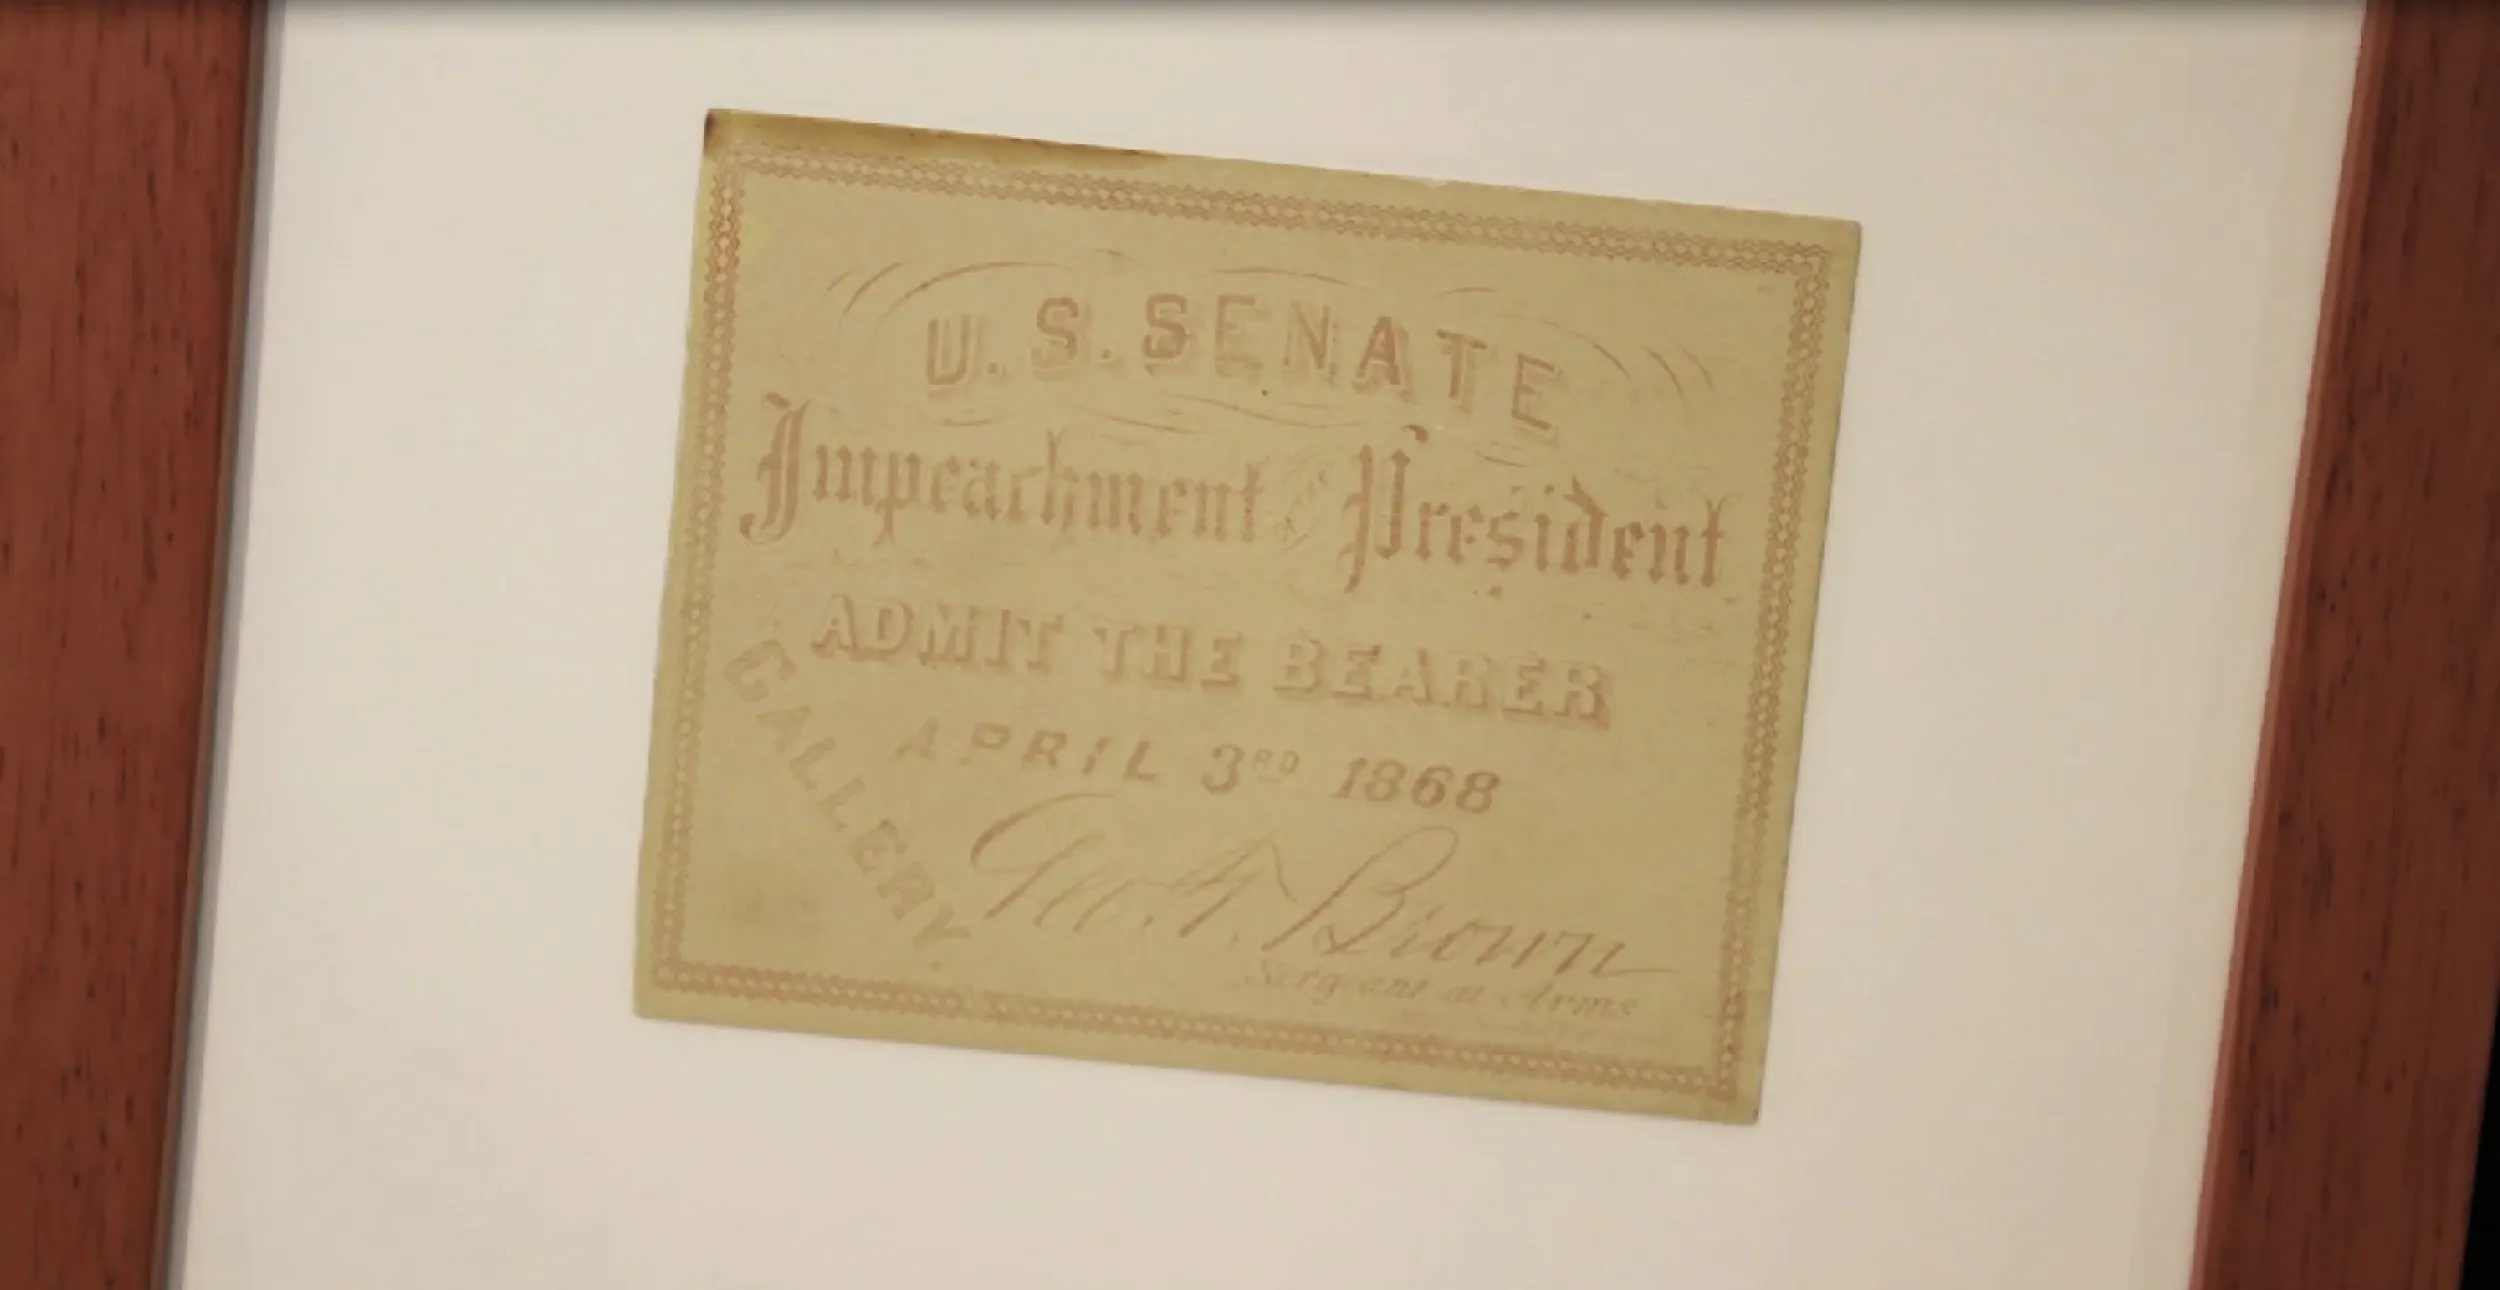 U. S. SENATE
Impeachment of the President
ADMIT THE BEARER
APRIL 3RD 1868
GALLERY
Geo. T. Brown
Sergeant at Arms